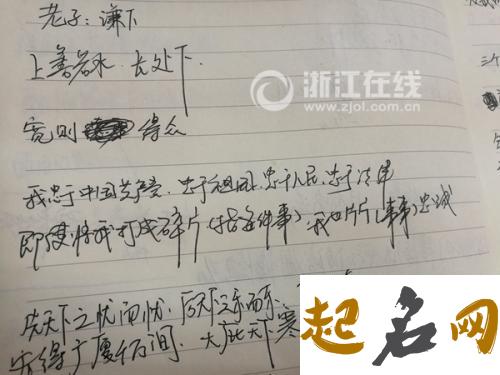 老子：谦下
上善若水．长处下．
浙江在线
www.zjol.com.cn
三个
宽则 得众
我忠于中国共产党．忠于祖国．忠于人民．忠于法律
即使将我打成碎片（指每件事）我也片片（事事）忠诚
先天下之忧而忧．后天下之乐而乐．
安得广厦千万间．大庇天下寒
起名网